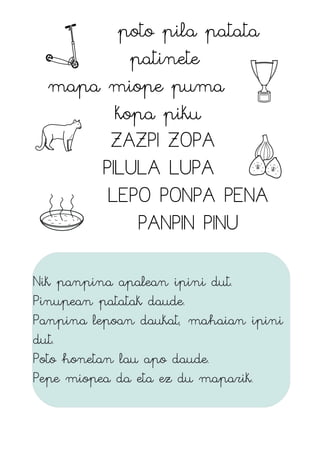 poto pila patata
patinete
mapa miope puma
kopa piku
ZAZPI ZOPA
PILULA LUPA
LEPO PONPA PENA
PANPIN PINU
Nik panpina apalean ipini dut.
Pinupean patatak daude.
Panpina lepoan daukat, mahaian ipini
dut.
Poto honetan lau apo daude.
Pepe miopea da eta ez du maparik.